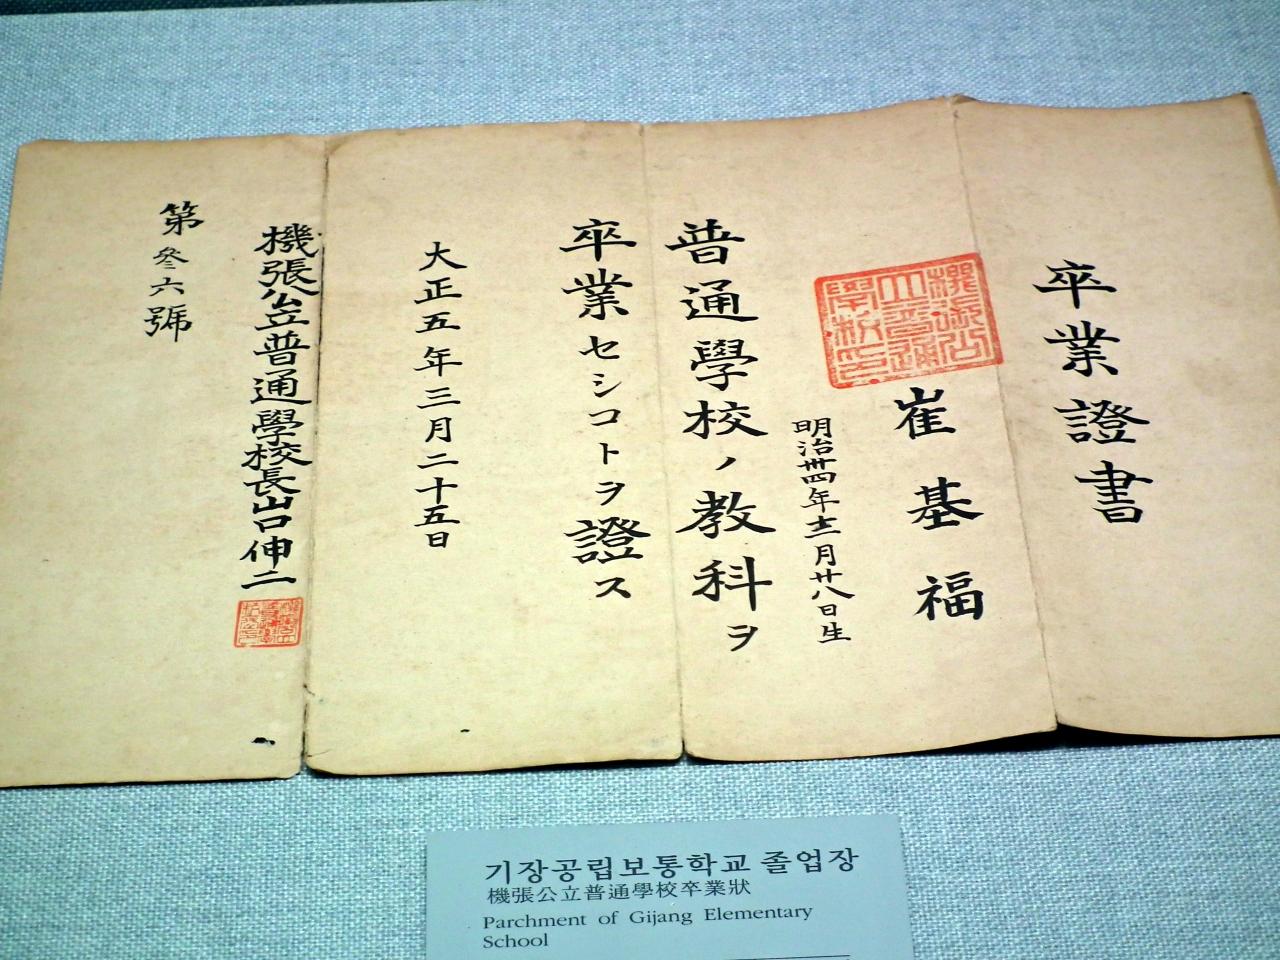 卒業證書
崔基福
明治卅四年十二月廿八日生
普通學校ノ教科ヲ
卒業セシコトヲ證ス
大正五年三月二十五日
機張公立普通學校長山口伸二
第參六號
기장공립보통학교 졸업장
機張公立普通學校卒業狀
Parchment of Gijang Elementary
School